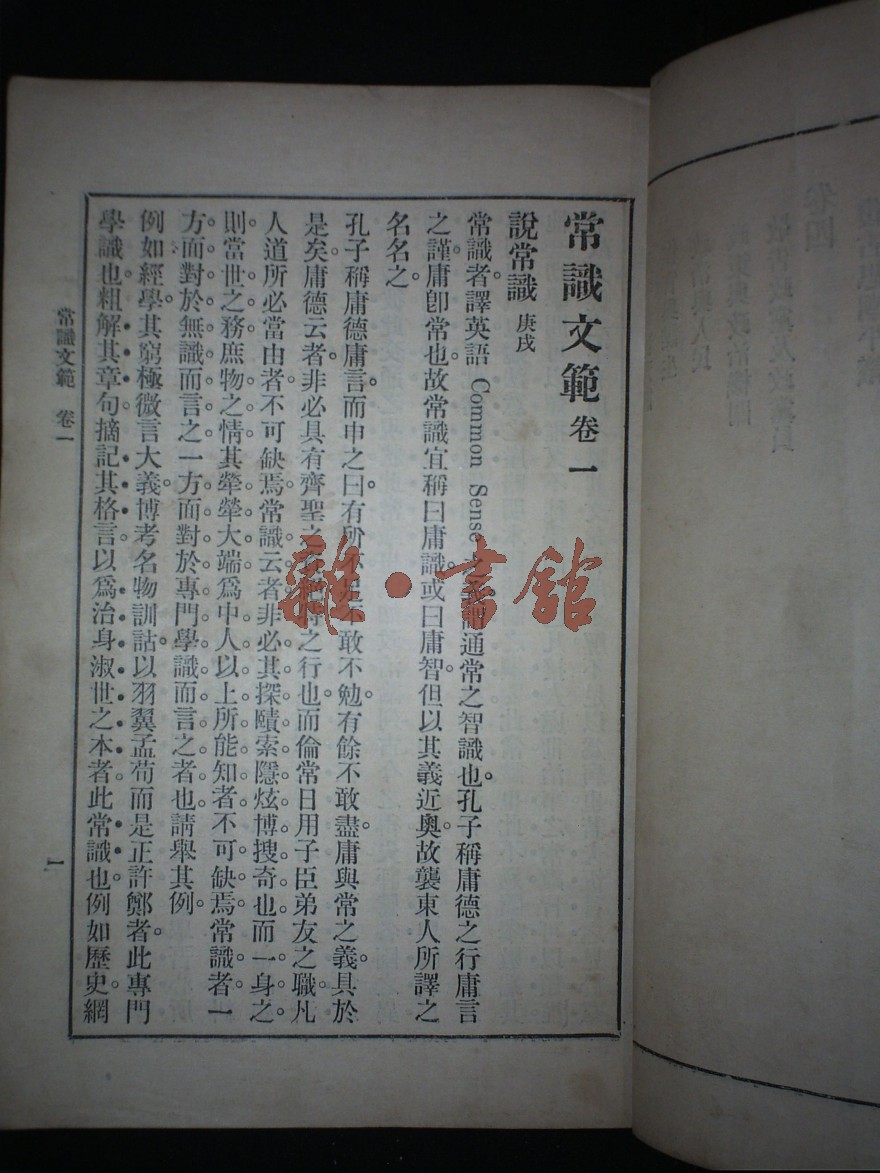 常識文範 卷一
說常識 庚戌
常識者。譯英語 Common Sense 之義。謂通常之智識也。孔子稱庸德之行庸言
之謹。庸卽常也。故常識宜稱曰庸識。或曰庸智。但以其義近奧。故襲東人所譯之
名名之。
孔子稱庸德庸言。而申之曰。有所不足。不敢不勉。有餘不敢盡。庸與常之義。具於
是矣。庸德云者。非必具有齊聖之之行也。而倫常日用子臣弟友之職。凡
人道所必當由者。不可缺焉。常識云者。非必其探賾索隱炫博搜奇也。而一身之
則。當世之務。庶物之情。其犖犖大端。爲中人以上所能知者。不可缺焉。常識者。一
方面對於無識而言之。一方面對於專門學識而言之者也。請舉其例。
例如經學。其窮極微言大義。博考名物訓詁。以羽翼孟荀而是正許鄭者。此專門
學識也。粗解其章句。摘記其格言。以爲治身淑世之本者。此常識也。例如歷史。網
常識文範 卷一
一
雜·書館
卷四